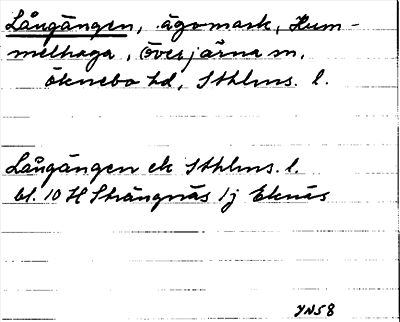 Långängen, ägomark, Hum-
melhaga, Överjärna sn,
Öknebo hd, Sthlms. l.
Långängen ek Sthlms. l.
bl. 10 H Strängnäs 1j Eknäs
JN58